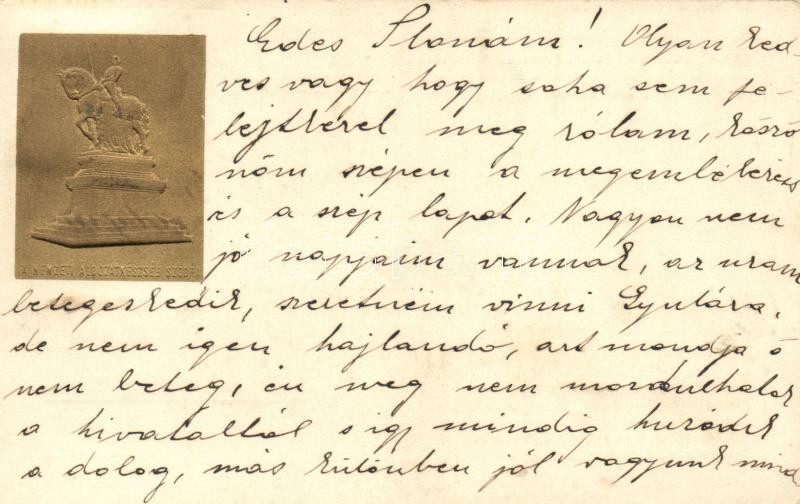 Edes Ilonám! Olyan ked-
ves vagy hogy soha sem fe-
lejtkezel meg rólam, köszö
nöm szépen a megemlékezés
és a szép lapot. Nagyon nem
jó napjaim vannak, az uram
betegeskedik, szeretném vinni Gyulára,
de nem igen hajlandó, azt mondja ő
nem beteg, én meg nem mozdulhatok
a hivataltól s így mindig huzódik
a dolog, más különben jól vagyunk mind
A NEMZETI ÁLDOZATKÉSZSÉG SZOBRA